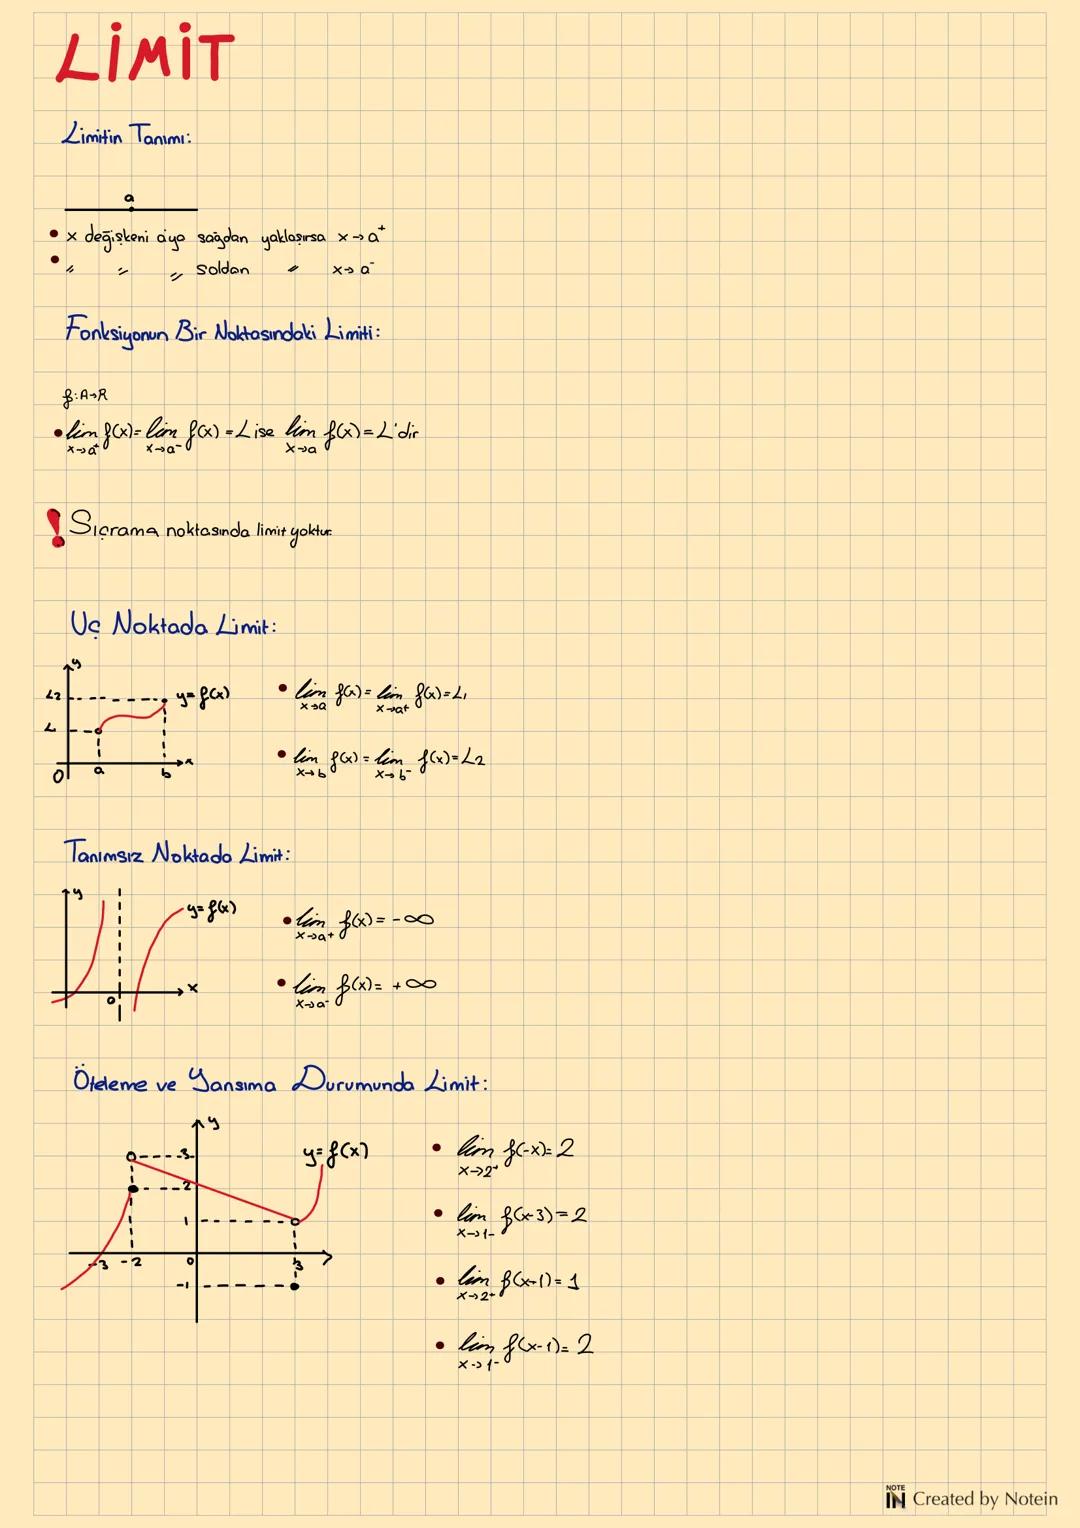 LİMİT
Limitin Tanımı:
a
• x değişkeni a'ya sağdan yaklaşırsa x→a⁺
• " " " soldan " x→a⁻
Fonksiyonun Bir Noktasındaki Limiti:
f:A→R
• lim x→a⁺ f(x) = lim x→a⁻ f(x) = L ise lim x→a f(x) = L'dir
! Sıçrama noktasında limit yoktur.
Uç Noktada Limit:
y
L2
y=f(x)
L
O a b x
• lim x→a f(x) = lim x→a⁺ f(x) = L₁
• lim x→b f(x) = lim x→b⁻ f(x) = L2
Tanımsız Noktada Limit:
y
y=f(x)
x
• lim x→a⁺ f(x) = -∞
• lim x→a⁻ f(x) = +∞
Öteleme ve Yansıma Durumunda Limit:
y
3
y=f(x)
2
1
-3 -2 0 3
-1
• lim x→2⁺ f(-x) = 2
• lim x→1- f(x-3) = 2
• lim x→2⁺ f(x+1) = 1
• lim x→1- f(x-1) = 2
NOTE IN Created by Notein